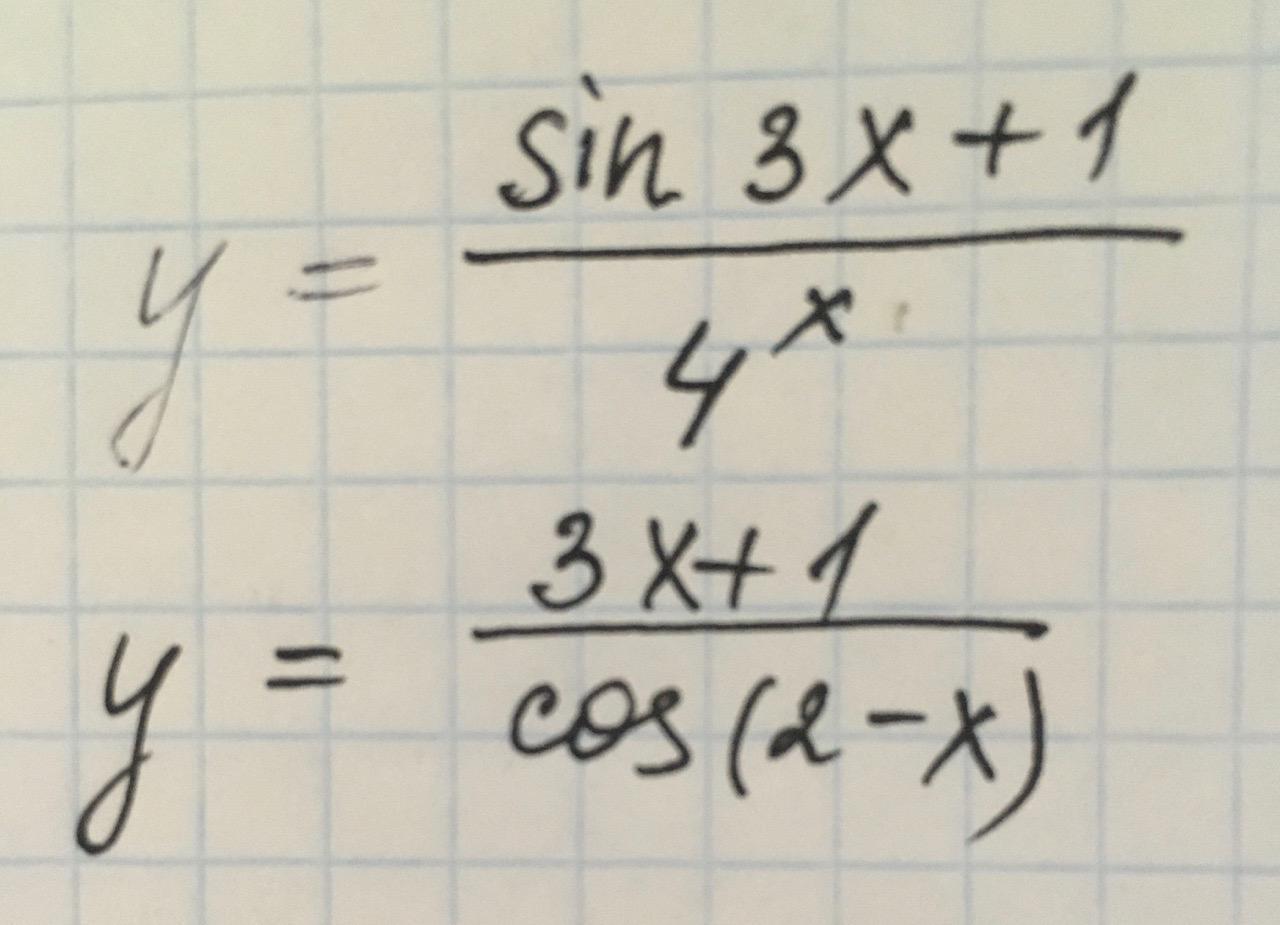 y = \frac{sin 3x + 1}{4^x}
y = \frac{3x + 1}{cos(2 - x)}